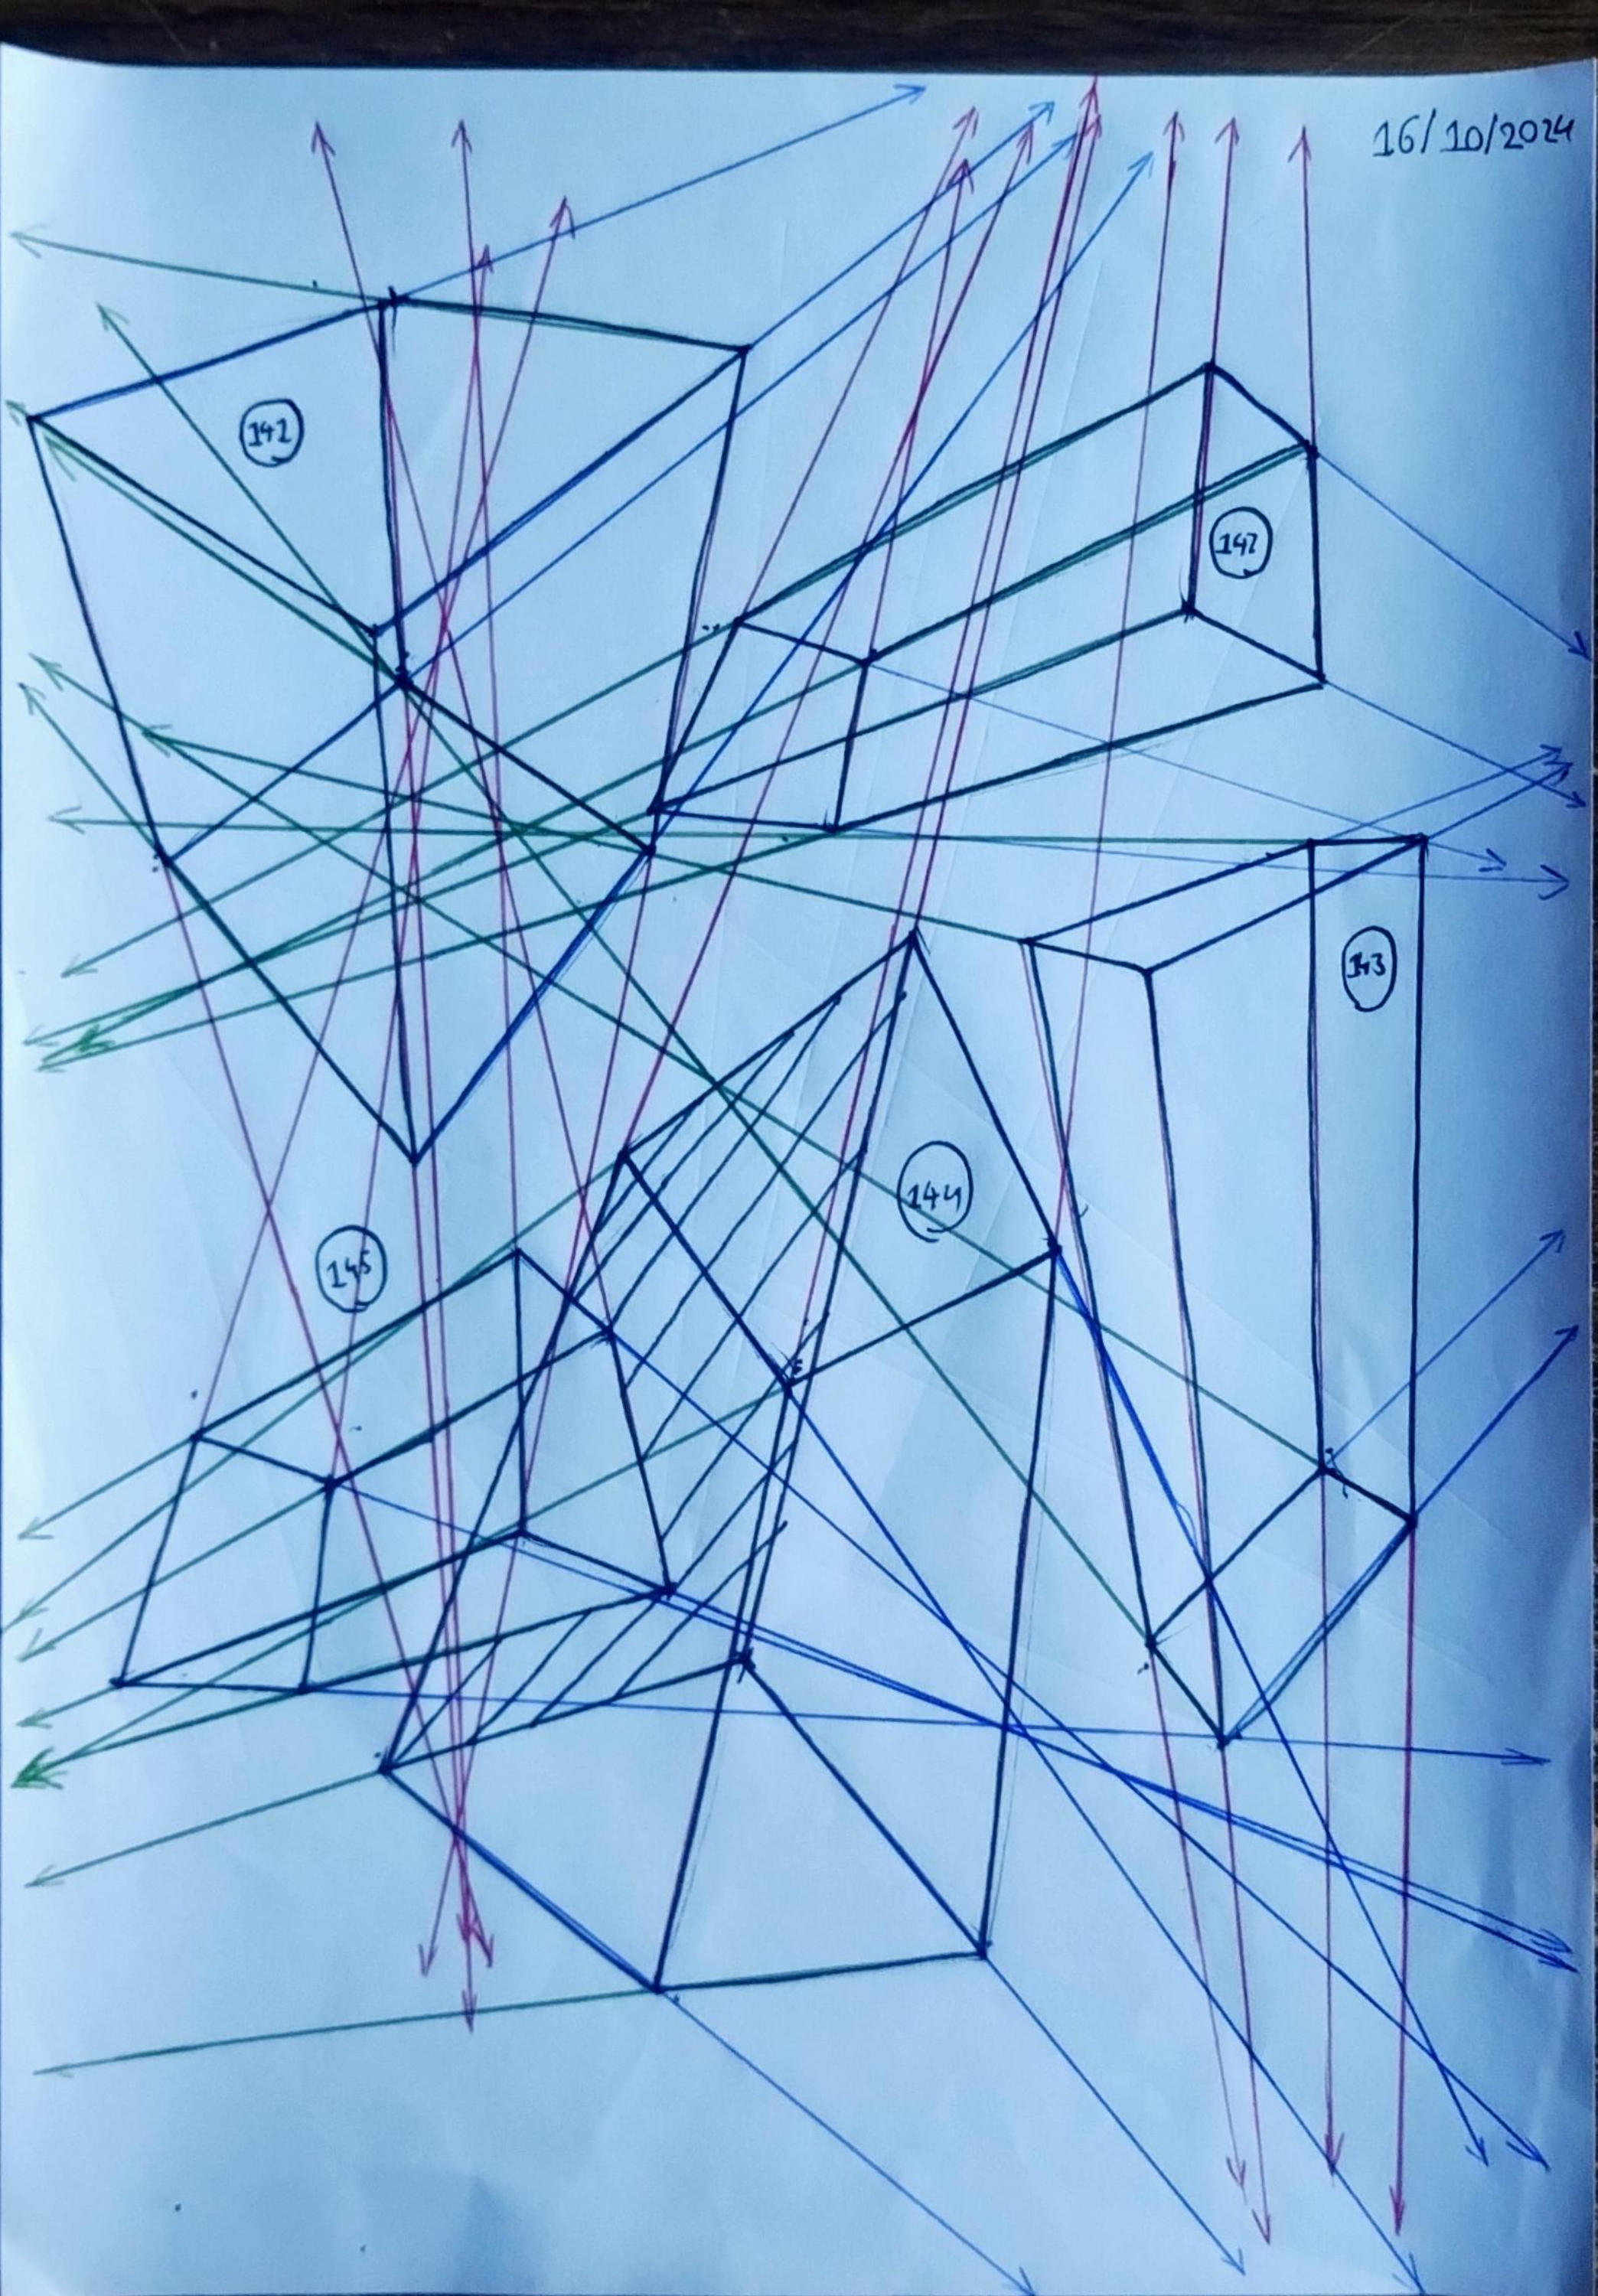 16/10/2024
141
142
143
144
145